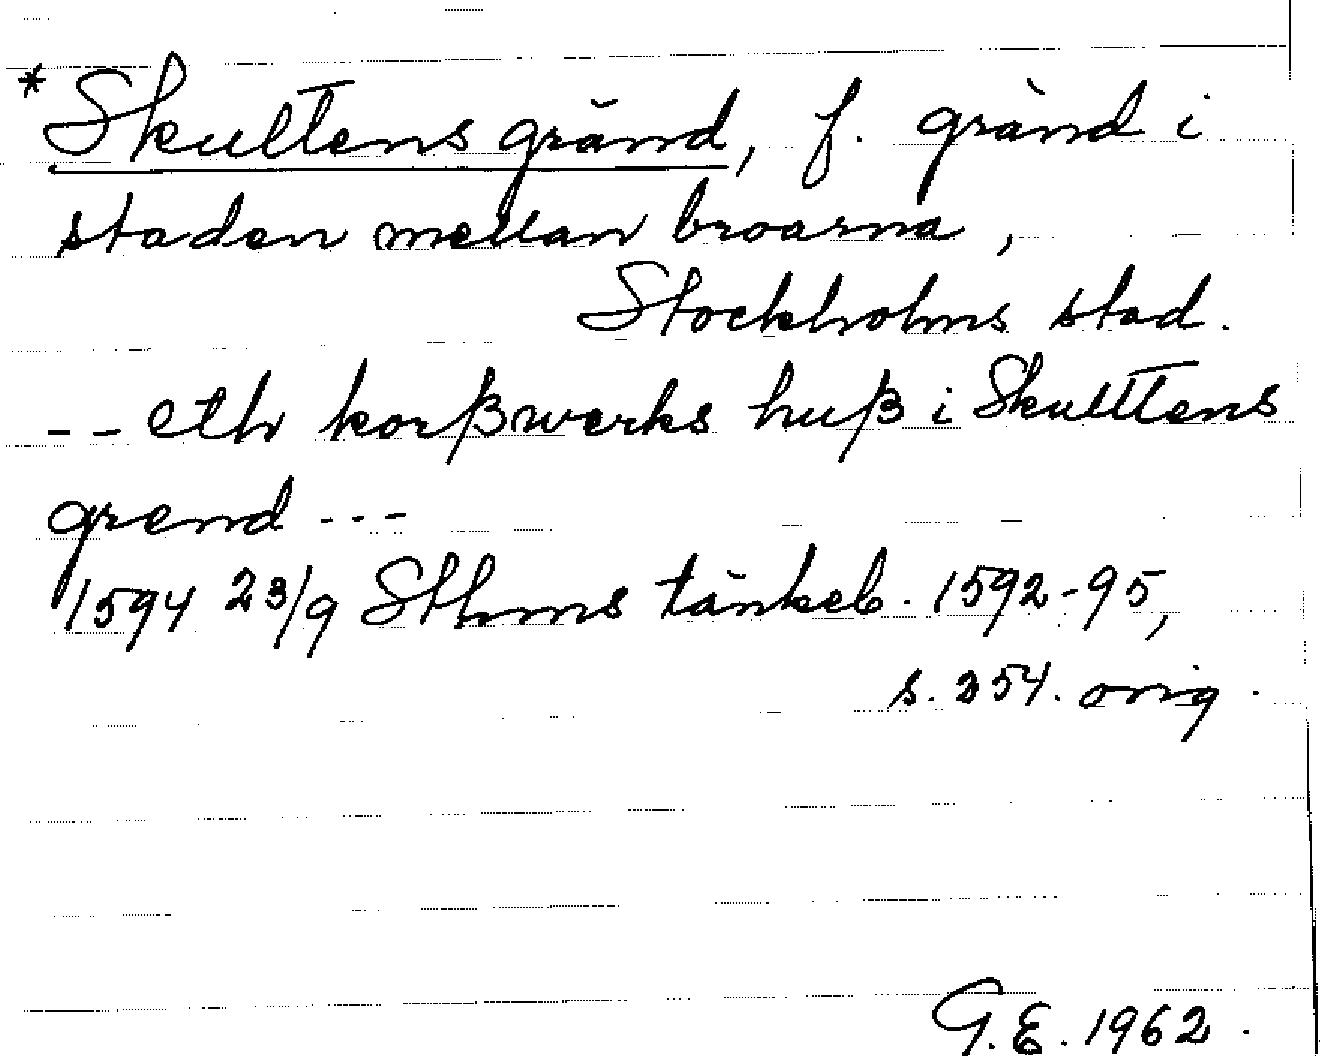 * Skultens gränd, f. gränd i
staden mellan broarna,
Stockholms stad.
-- eth korßwerks huß i Skulttens
grend ---
1594 23/9 Sthms tänkeb. 1592-95,
s. 254. orig.
G.E. 1962.